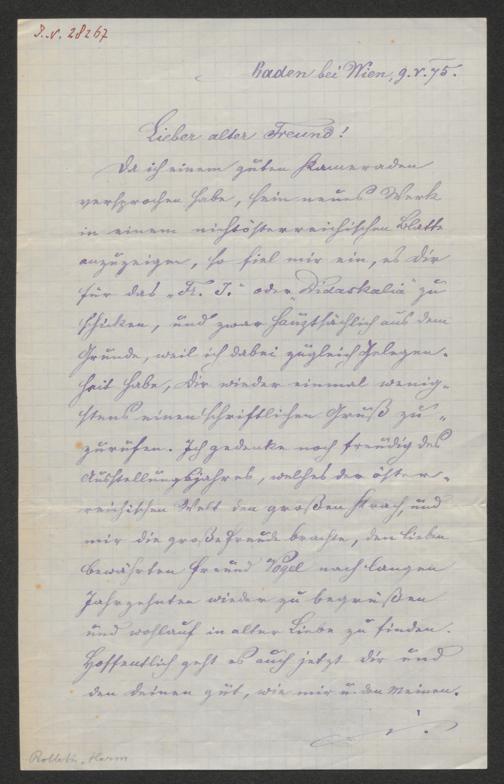 I.N. 28267
Baden bei Wien, 9.V.75.
Lieber alter Freund!
Da ich einem guten Kameraden
versprochen habe, sein neues Werk
in einem nichtösterreichischen Blatte
anzuzeigen, so fiel mir ein, es Dir
für das „Fr. J." oder „Didaskalia" zu
schicken, und zwar hauptsächlich aus dem
Grunde, weil ich dabei zugleich Gelegen-
heit habe, Dir wieder einmal wenig-
stens einen schriftlichen Gruß zu-
zurufen. Ich gedenke noch freudig des
Ausstellungsjahres, welches der öster-
reichischen Welt den großen Krach, und
mir die große Freude brachte, den lieben
bewährten Freund Vogel nach langen
Jahrzehnten wieder zu begrüßen
und wohlauf in alter Liebe zu finden.
Hoffentlich geht es auch jetzt Dir und
den Deinen gut, wie mir u. den Meinen.
Rollett, Herm